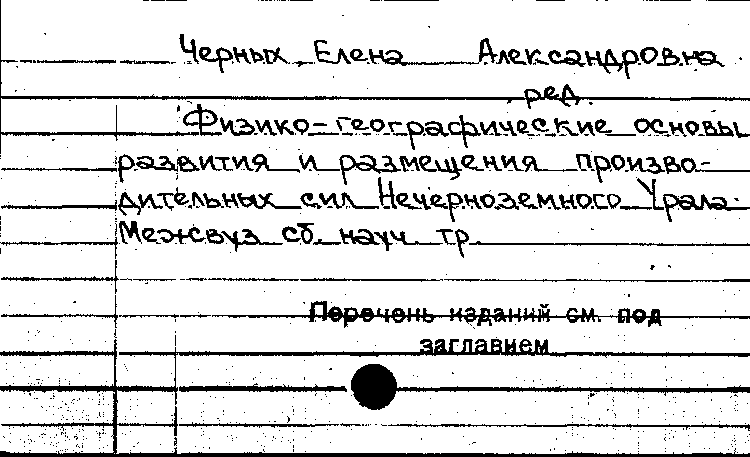 Черных, Елена Александровна
ред.
Физико-географические основы
развития и размещения произво-
дительных сил Нечерноземного Урала.
Межвуз сб. науч. тр.
Перечень изданий см. под
заглавием